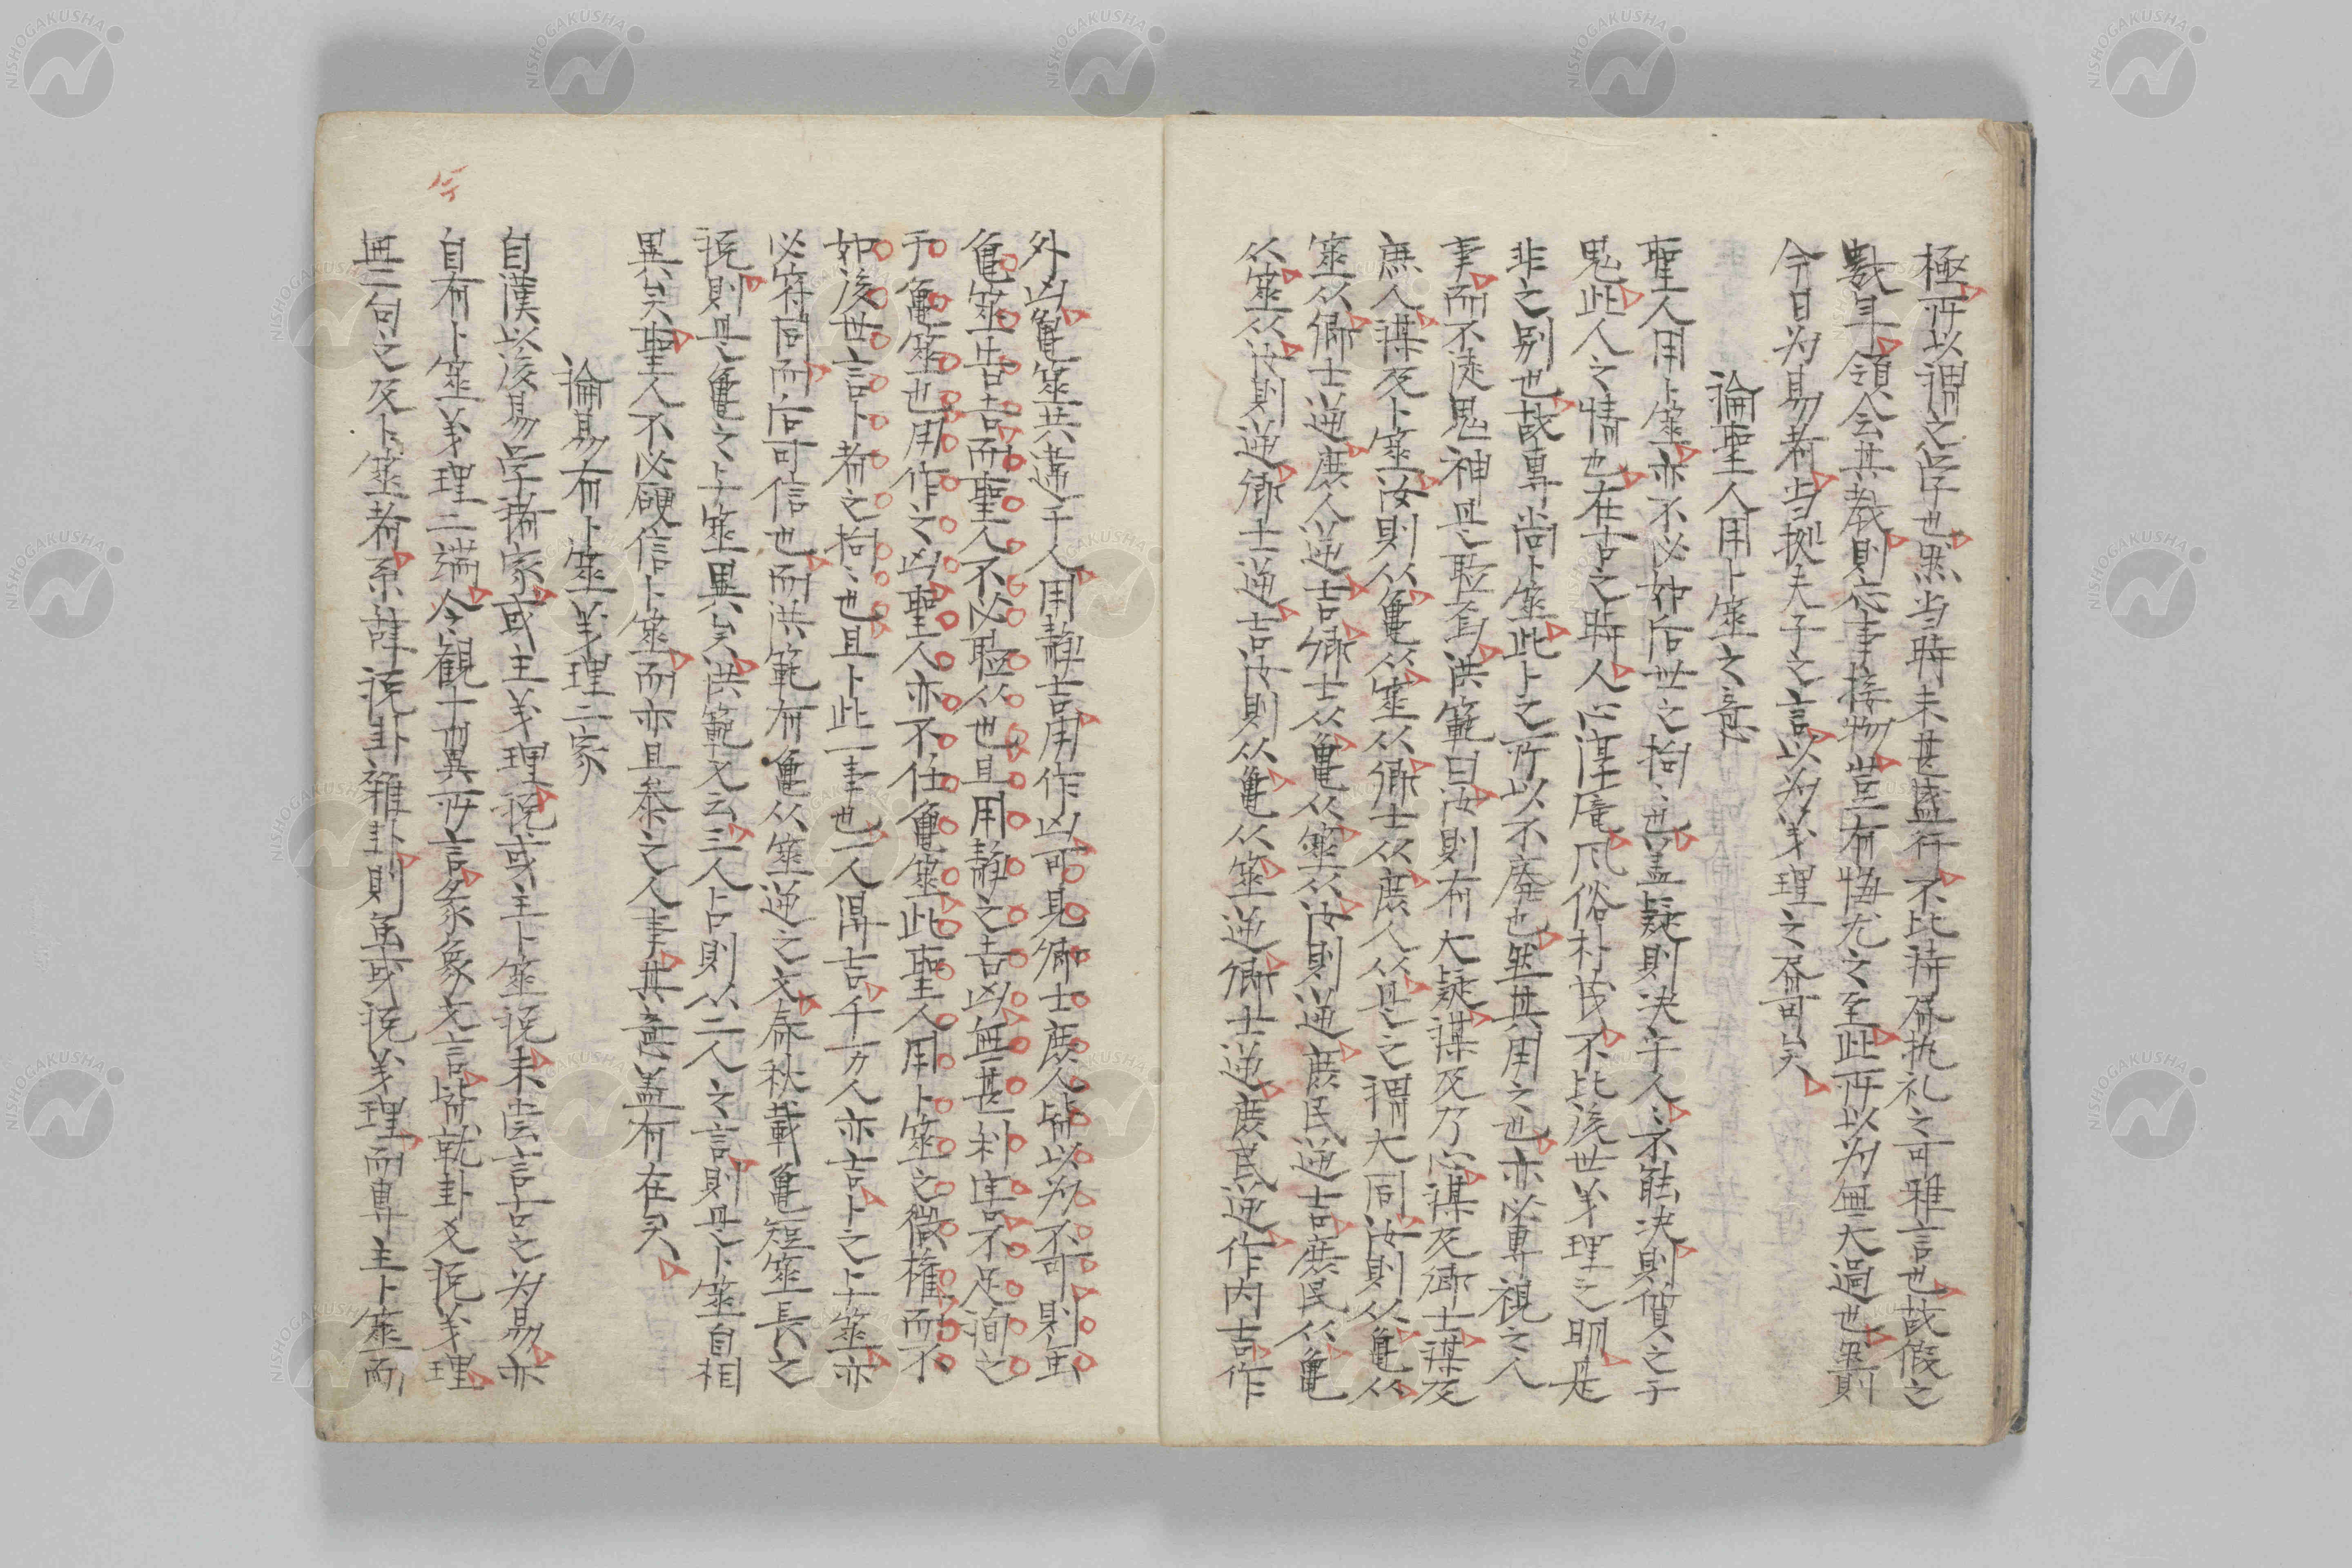 極所以謂之学也然当時未甚盛行不比詩書執礼之可雅言也故假之
数年領会其教則応事接物豈有悔尤之至此所以为無大過也然則
今日为易者当拠夫子之言以为義理之书可矣
論聖人用卜筮之意
聖人用卜筮亦不必如后世之拘〻也盖疑則决乎人〻不能决則質之于
鬼此人之情也在古之時人心淳庬风俗朴茂不比後世義理之明是
非之别也故専尚卜筮此卜之所以不廃也然其用之也亦必専視之人
事而不徒鬼神是聴焉洪範曰汝則有大疑謀及乃心謀及卿士謀及
庶人謀及卜筮汝則从龜从筮从卿士从庶人从是之謂大同汝則从龜从
筮从卿士逆庶人逆吉卿士从龜从筮从汝則逆庶民逆吉庶民从龜
从筮从汝則逆卿士逆吉汝則从龜从筮逆卿士逆庶民逆作内吉作
外凶龜筮共違于人用静吉用作凶可見卿士庶人皆以为不可則虽
龜筮告吉而聖人不必聴从也且用静之吉凶無甚利害不足洵之
于龜筮也用作之凶聖人亦不任龜筮此聖人用卜筮之微権而不
如後世言卜者之拘〻也且卜此一事也一人得吉千万人亦吉卜之上筮亦
必符同而后可信也而洪範有龜从筮逆之文春秋載龜短筮長之
説則是龜之与筮異矣洪範又云三人占則从二人之言則是卜筮自相
異矣聖人不必硬信卜筮而亦且参之人事其意盖有在矣
論易有卜筮義理二家
自漢以後易学諸家或主義理説或主卜筮説未尝言古之为易亦
自有卜筮義理二端今観十翼所言彖象文言皆就卦爻説義理
無一句之及卜筮者系辞説卦雜卦則虽或説義理而専主卜筮而
NISHOGAKUSHA